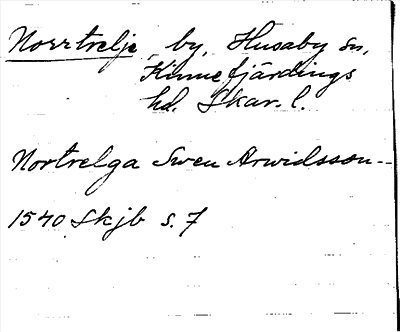 Norrtrelje by, Husaby sn,
Kinnefjärdings
hd. Skar. l.
Nortrelga Swen Arwidsson--
1540 Skjb s. 7